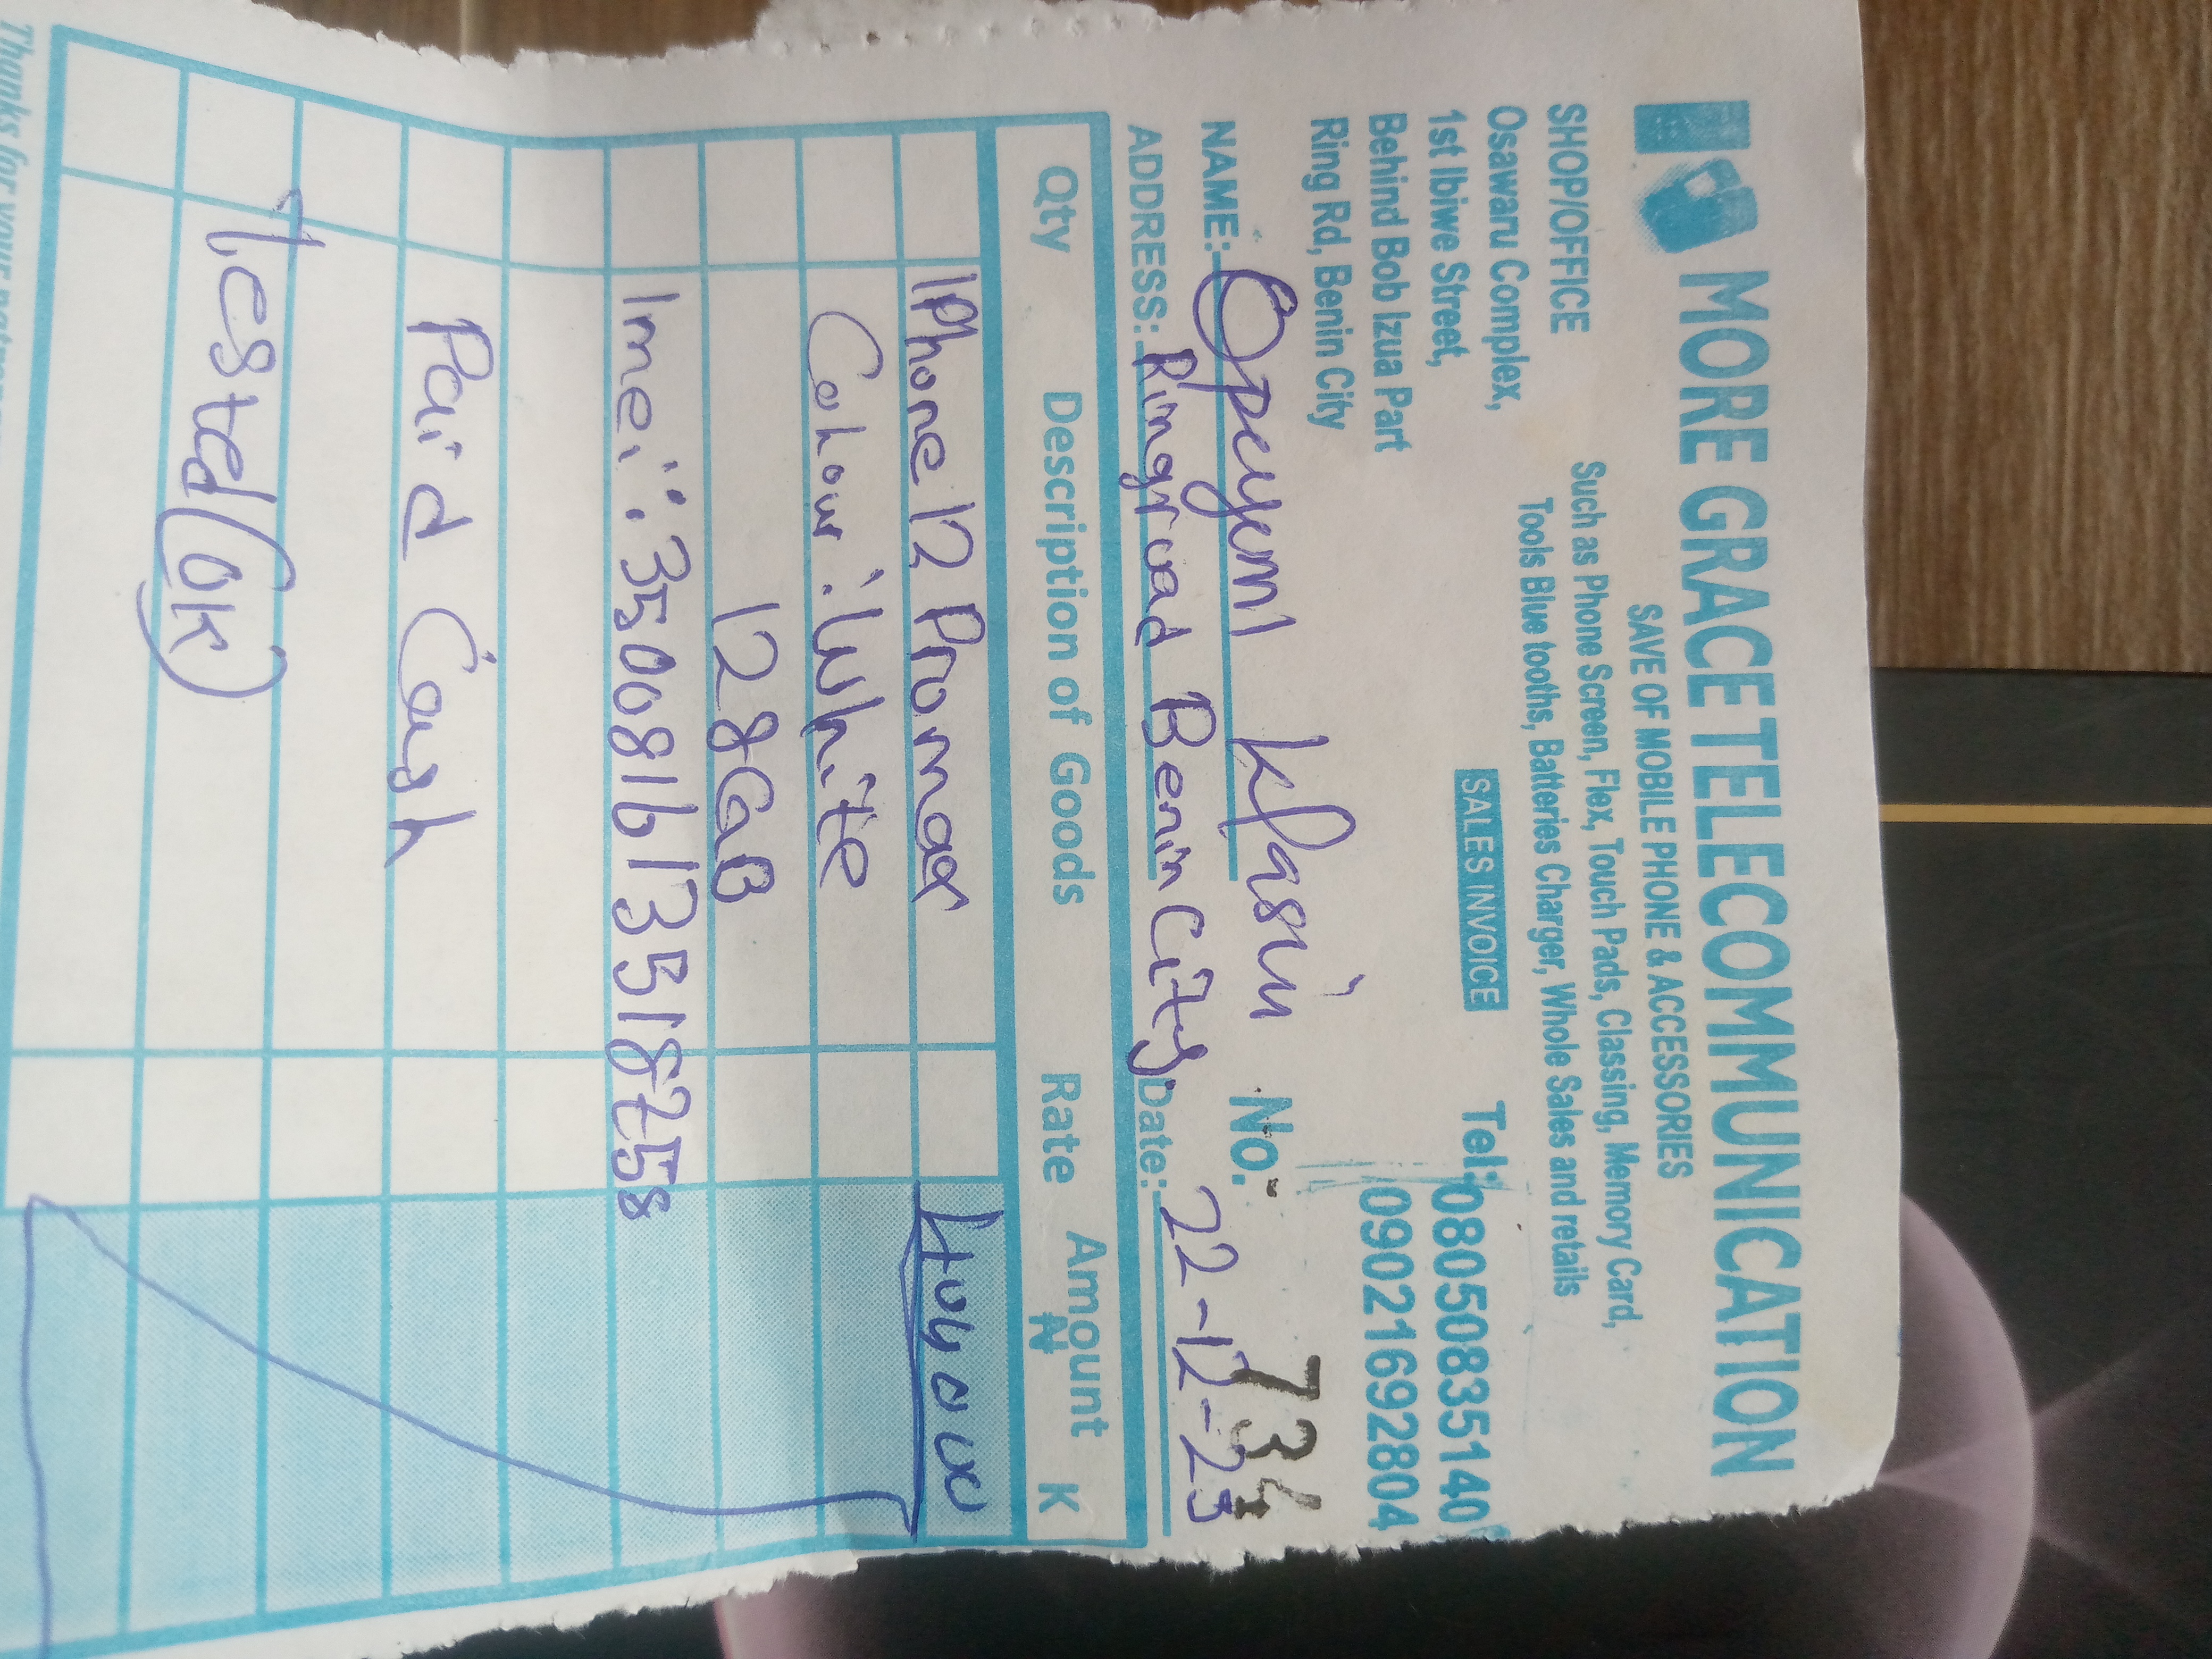 MORE GRACE TELECOMMUNICATION
SAVE OF MOBILE PHONE & ACCESSORIES
Such as Phone Screen, Flex, Touch Pads, Classing, Memory Card,
Tools Blue tooths, Batteries Charger, Whole Sales and retails
SHOP/OFFICE
Osawaru Complex,
1st Ibiwe Street,
Behind Bob Izua Part
Ring Rd, Benin City
SALES INVOICE
Tel: 08050835140
09021692804
NAME: Opeyemi No: 734
ADDRESS: Ringroad Benin City. Date: 22-12-23
Qty Description of Goods Rate Amount
₦ K
IPhone 12 Promax
Colour: White
128GB
Imei: 350081613518258
Paid Cash
Tested (Ok)
Thanks for your